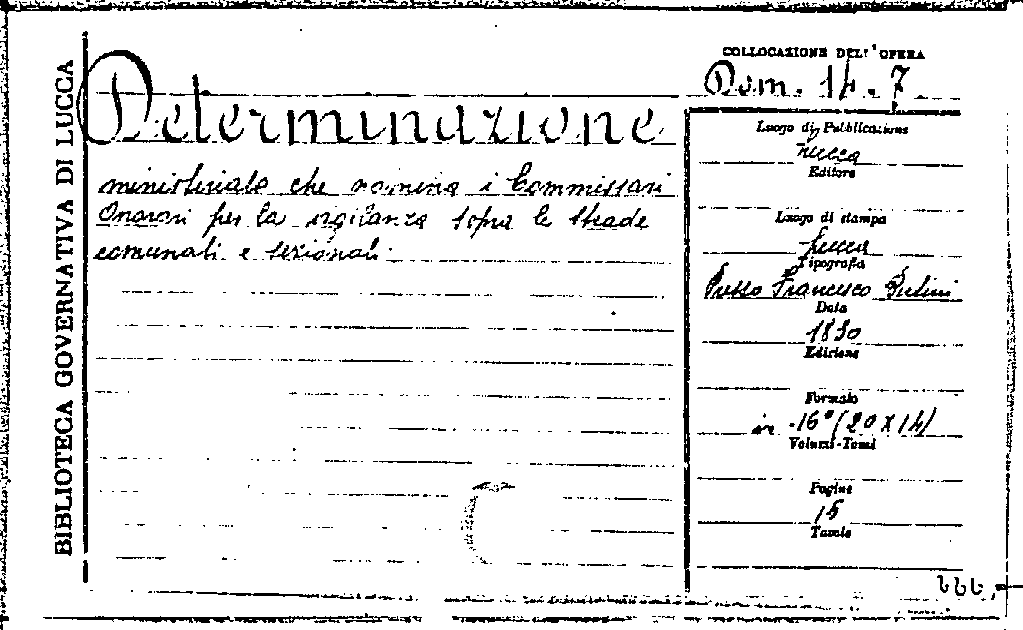 BIBLIOTECA GOVERNATIVA DI LUCCA
COLLOCAZIONE DELL'OPERA
Dom. 14. 7.
Determinazione
ministeriale che nomina i Commissari
Onorari per la vigilanza sopra le strade
comunali e sezionali.
Luogo di Pubblicazione
Lucca
Editore
Luogo di stampa
Lucca
Tipografia
Presso Francesco
Data
1830
Edizione
Formato
in -16° (20 x 14)
Volumi-Tomi
Pagine
15
Tavole